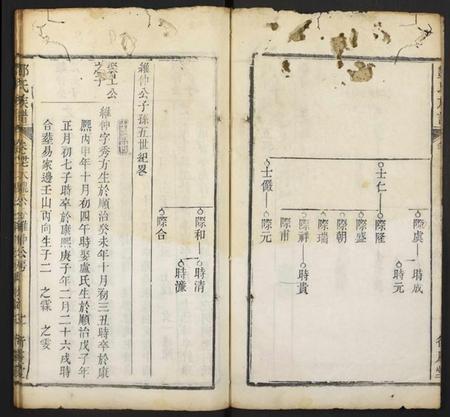 際虞
時成
時元
士仁
際隆
際盛
際朝
際瑞
際祥
時貴
際市
士儼
際元
際和
時清
時濂
際合
維仲公子孫五世紀畧
登上公
之子
維仲字秀方生於順治癸未年十月初三丑時卒於康
熙丙申年十月初四午時娶盧氏生於順治戊子年
正月初七子時卒於康熙庚子年二月二十六戌時
合葬易家邊壬山丙向生子二 之霖 之雯